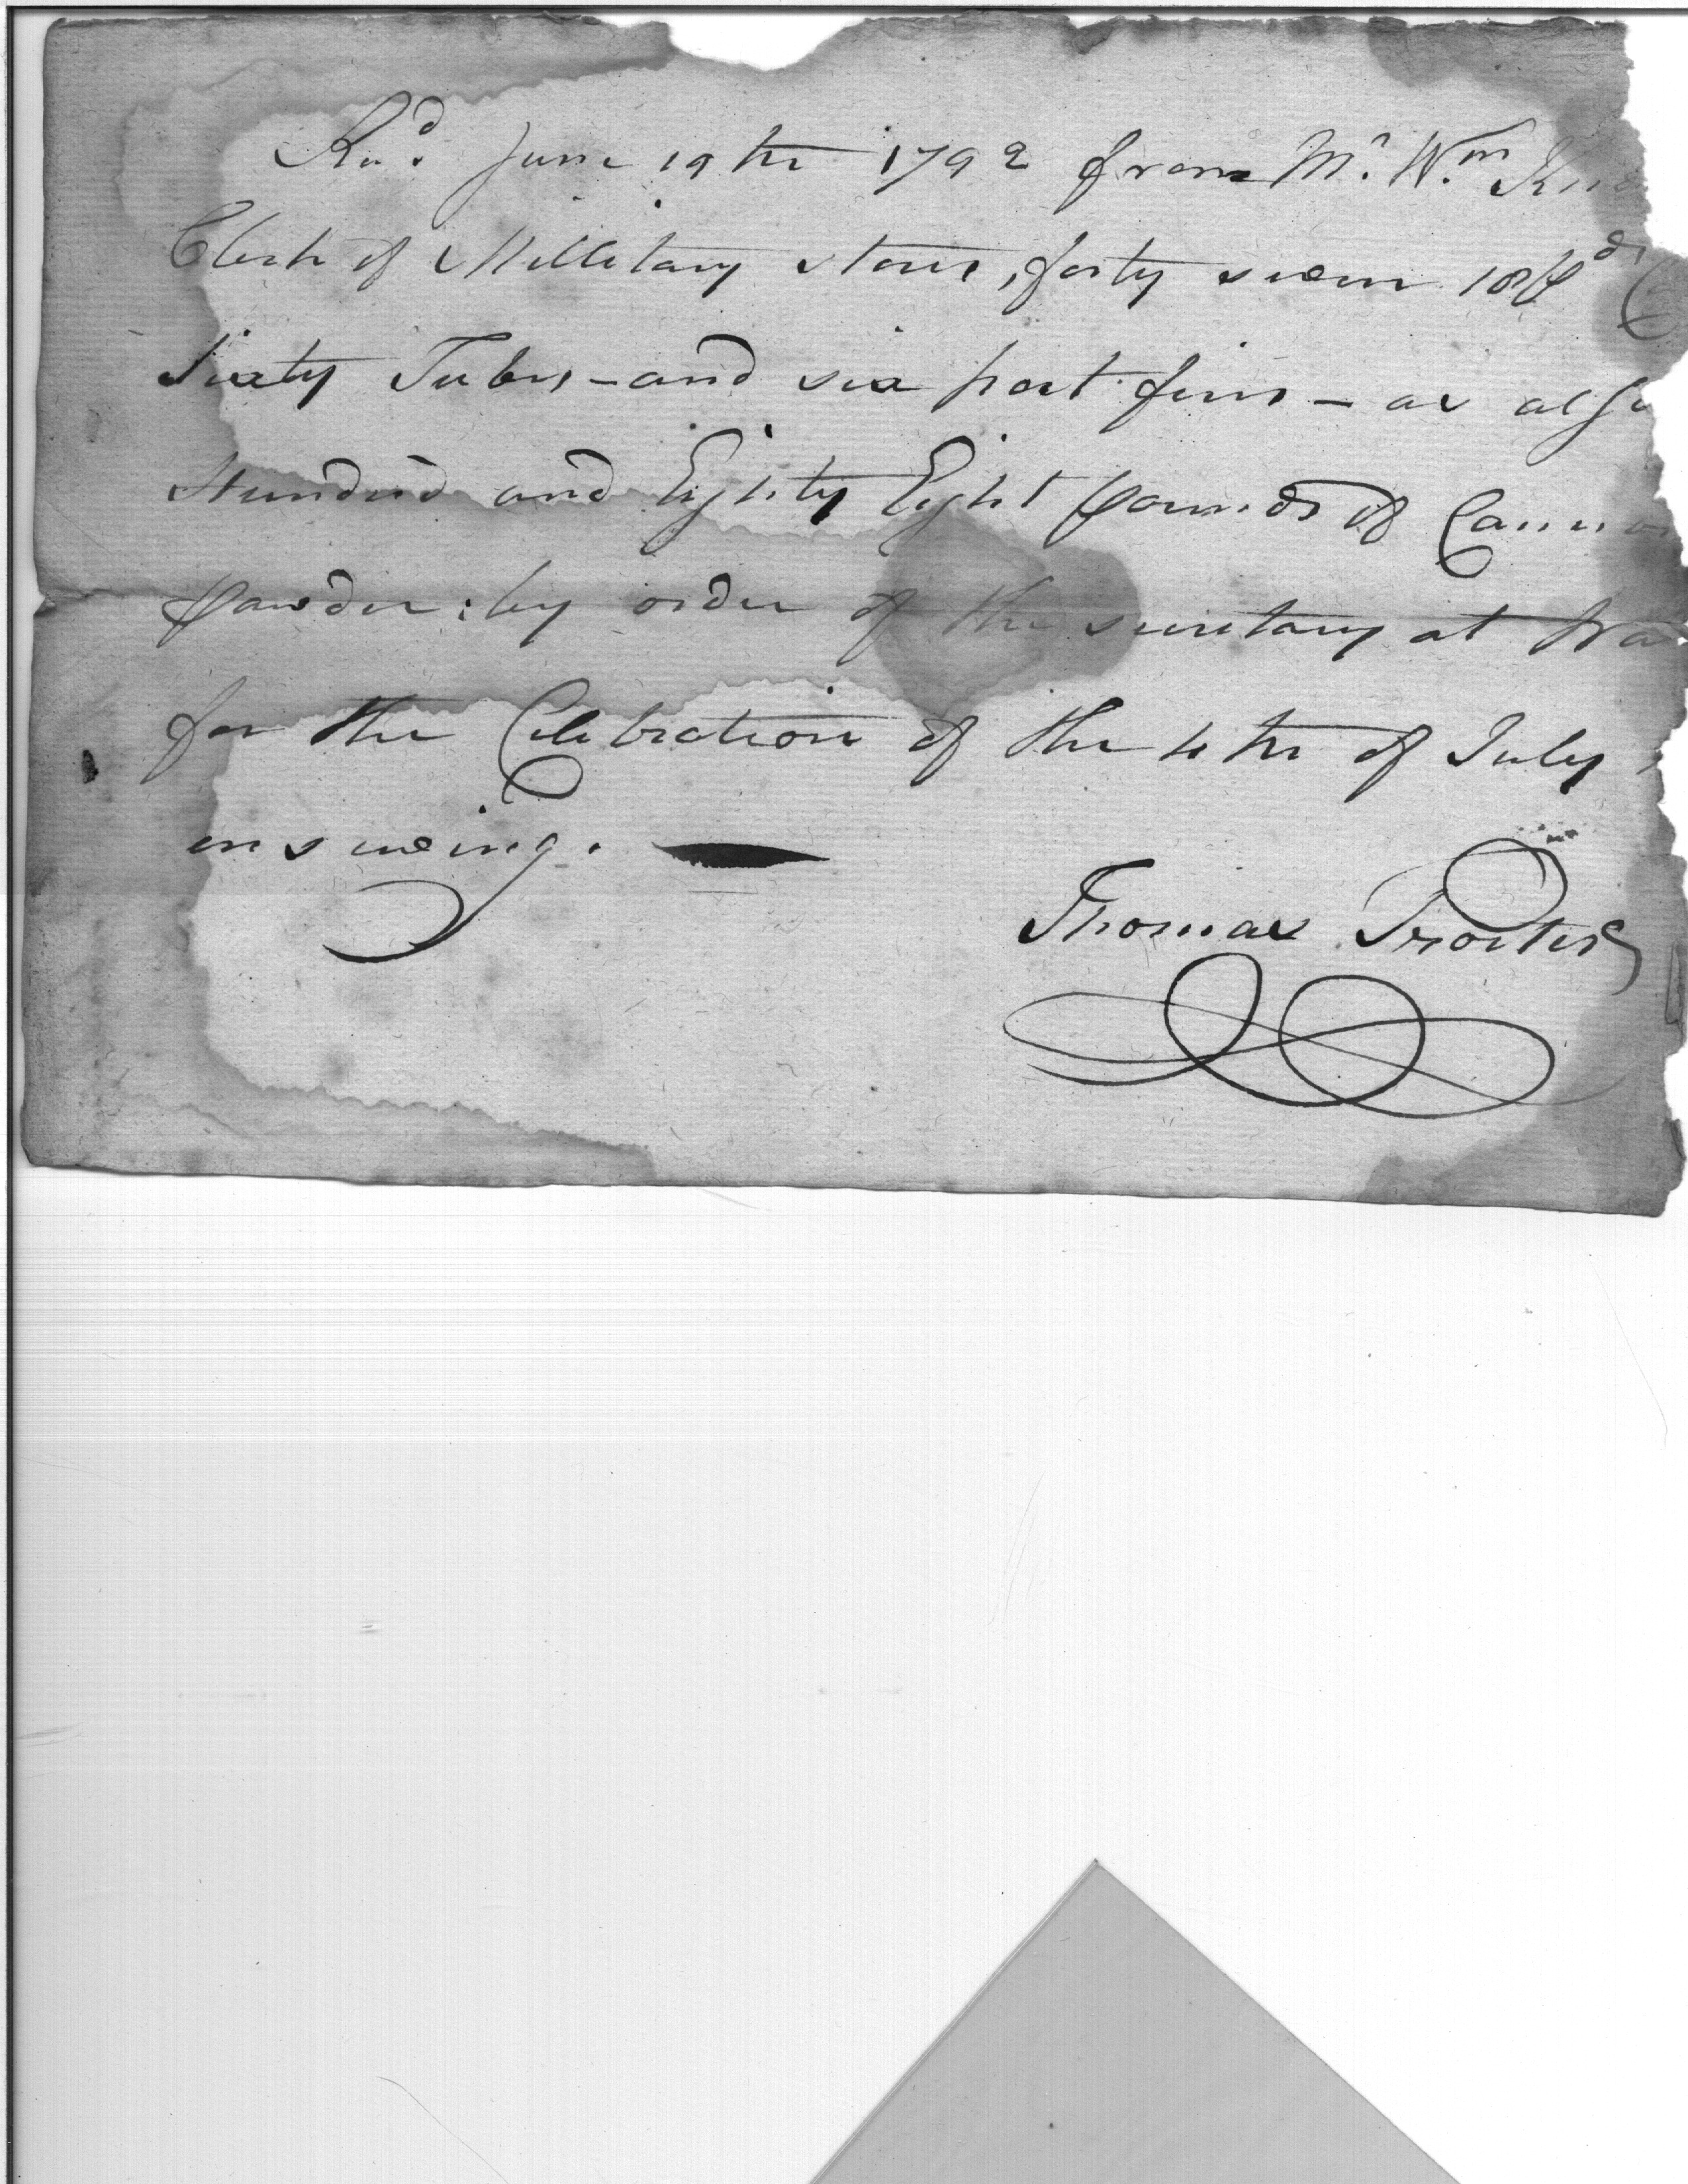 Rec.d June 19th 1792 from Mr. Wm.
Clerk of Millitary stores, forty seven 18 Pds
Sixty Tubes - and six port fires - as also
Hundred and Eighty Eight pounds of Cannon
Powder; by order of the secretary at War
for the Celebration of the 4th of July
ensueing.
Thomas Procter